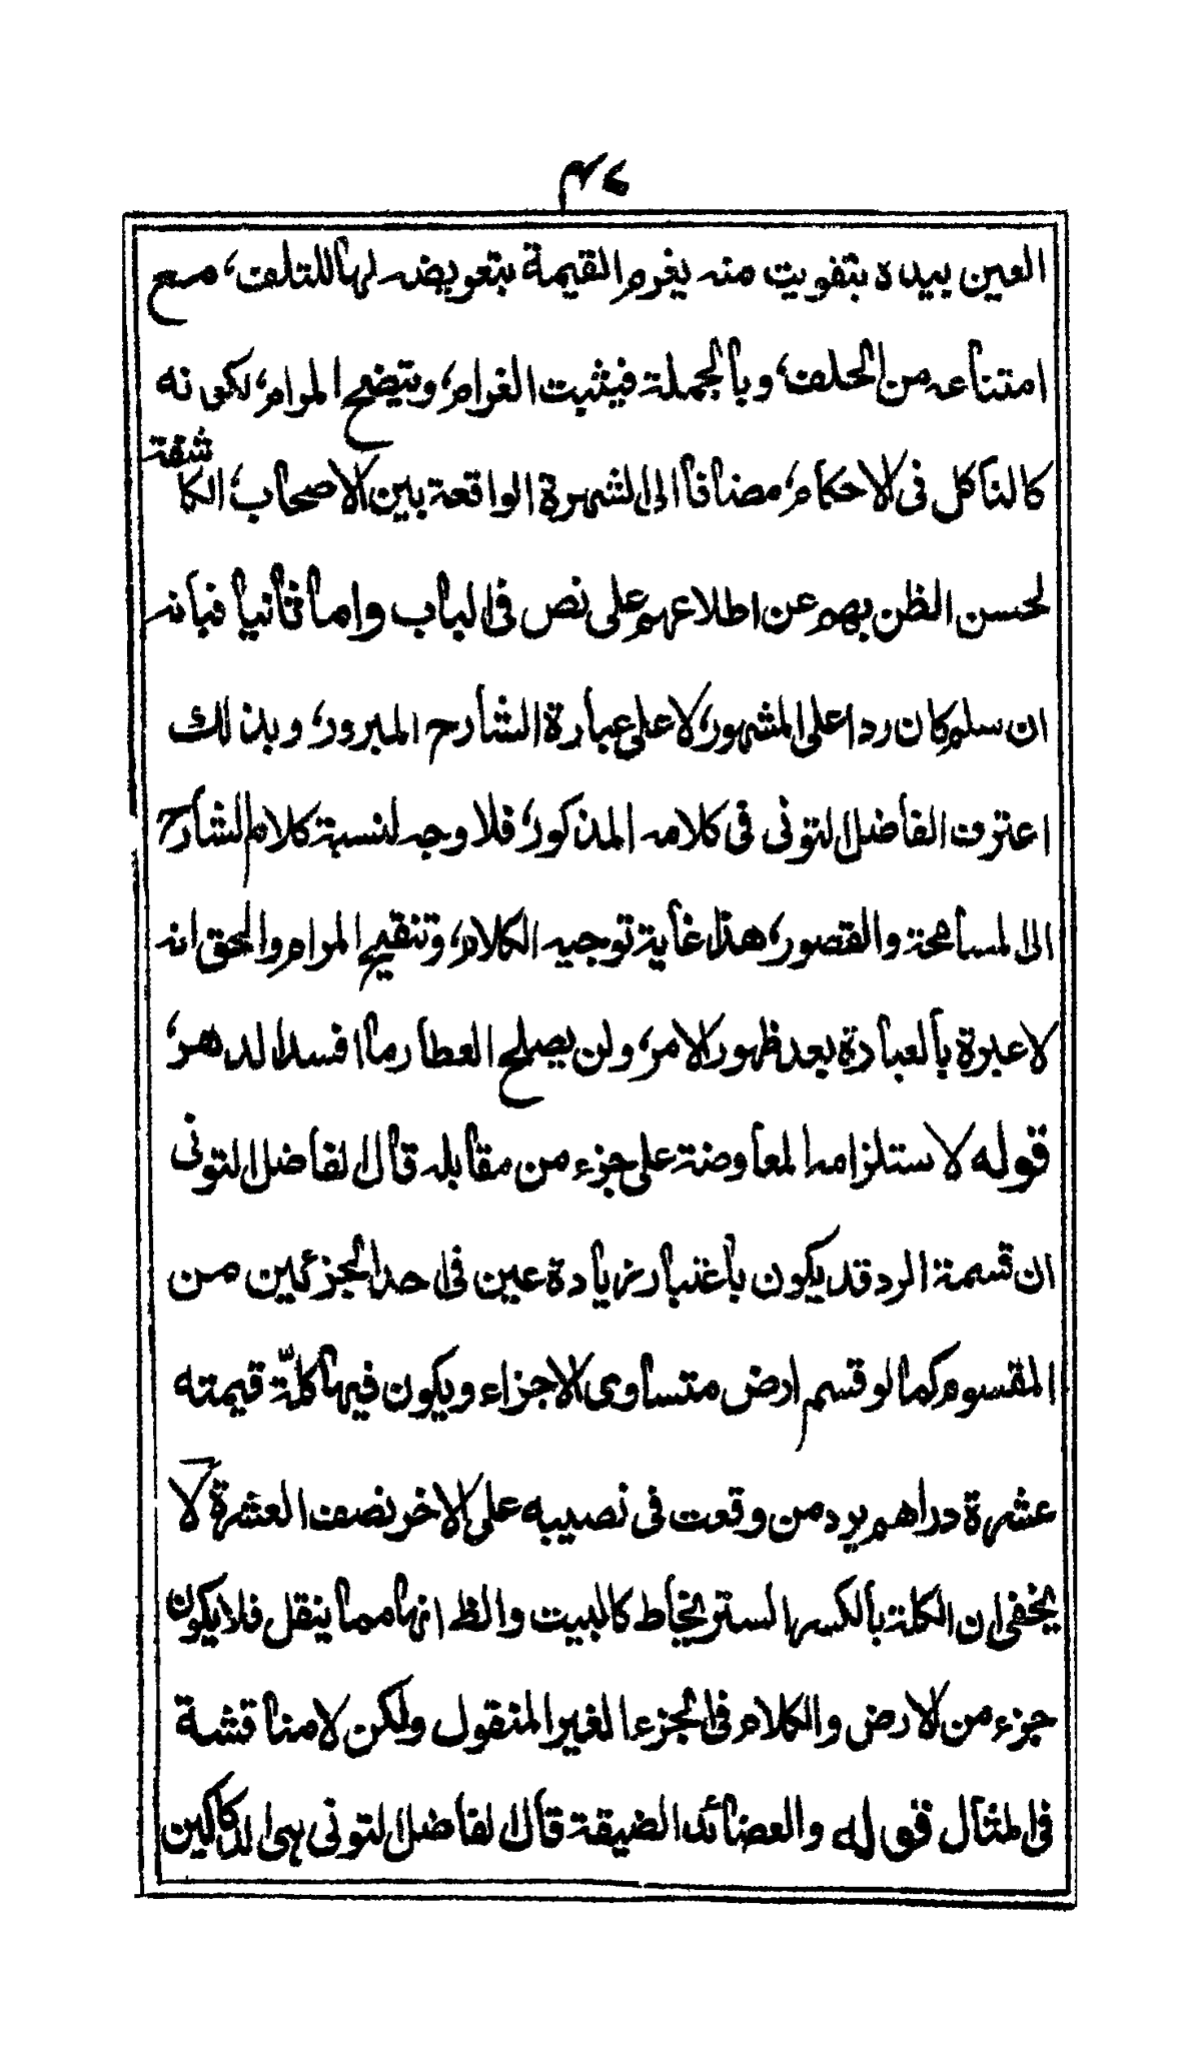 ٤٨
العين بيده بتفويت منه يغرم القيمة بتعويضه لها للتلف، مع
امتناعه من الحلف، وبالجملة فيثبت الغرام، ويتضح المرام، لكونه
كالناكل فى الاحكام، مضافا الى الشهرة الواقعة بين الاصحاب، الكاشفة
لحسن الظن بهم عن اطلاعهم على نص فى الباب واما ثانيا فبانه
ان سلم كان ردا على المشهور، لا على عبارة الشارح المبرور، وبذلك
اعترف الفاضل التونى فى كلامه المذكور، فلا وجه لنسبة كلام الشارح
الى المسامحة والقصور، هذا غاية توجيه الكلام، وتنقيح المرام والحق انه
لا عبرة بالعبادة بعد ظهور الامر، ولن يصلح العطار ما افسد الدهر،
قوله لاستلزامه المعاوضة على جزء من مقابله قال الفاضل التونى
ان قسمة الرد قد يكون باعتبار زيادة عين فى احد الجزئين من
المقسوم كما لو قسم ارض متساوى الاجزاء ويكون فيها كلّة قيمته
عشرة دراهم يرد من وقعت فى نصيبه على الاخر نصف العشرة لا
يخفى ان الكلة بالكسر الستر يخاط كالبيت والظ انها مما ينقل فلا يكون
جزء من الارض والكلام فى الجزء الغير المنقول ولكن لا مناقشة
فى المثال قوله والعضائد الضيقة قال الفاضل التونى هى الدكاكين